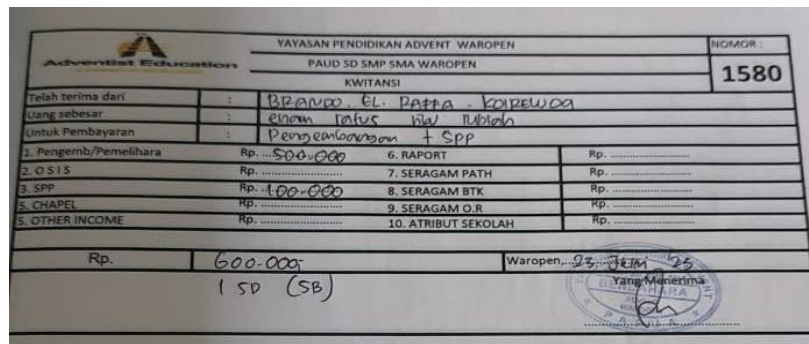 YAYASAN PENDIDIKAN ADVENT WAROPEN
NOMOR :
Adventist Education
PAUD SD SMP SMA WAROPEN
1580
KWITANSI
Telah terima dari : BRANDO. EL. RAFFA. KOIREWOA
Uang sebesar : enam ratus ribu rupiah
Untuk Pembayaran : Pengembangan + SPP
1. Pengemb/Pemelihara Rp. 500.000 6. RAPORT Rp.
2. O S I S Rp. 7. SERAGAM PATH Rp.
3. SPP Rp. 100.000 8. SERAGAM BTK Rp.
5. CHAPEL Rp. 9. SERAGAM O.R Rp.
5. OTHER INCOME Rp. 10. ATRIBUT SEKOLAH Rp.
Rp. 600.000,- Waropen, 23 Juni 25
1 SD (SB) Yang Menerima
BENDAHARA
PAPUA